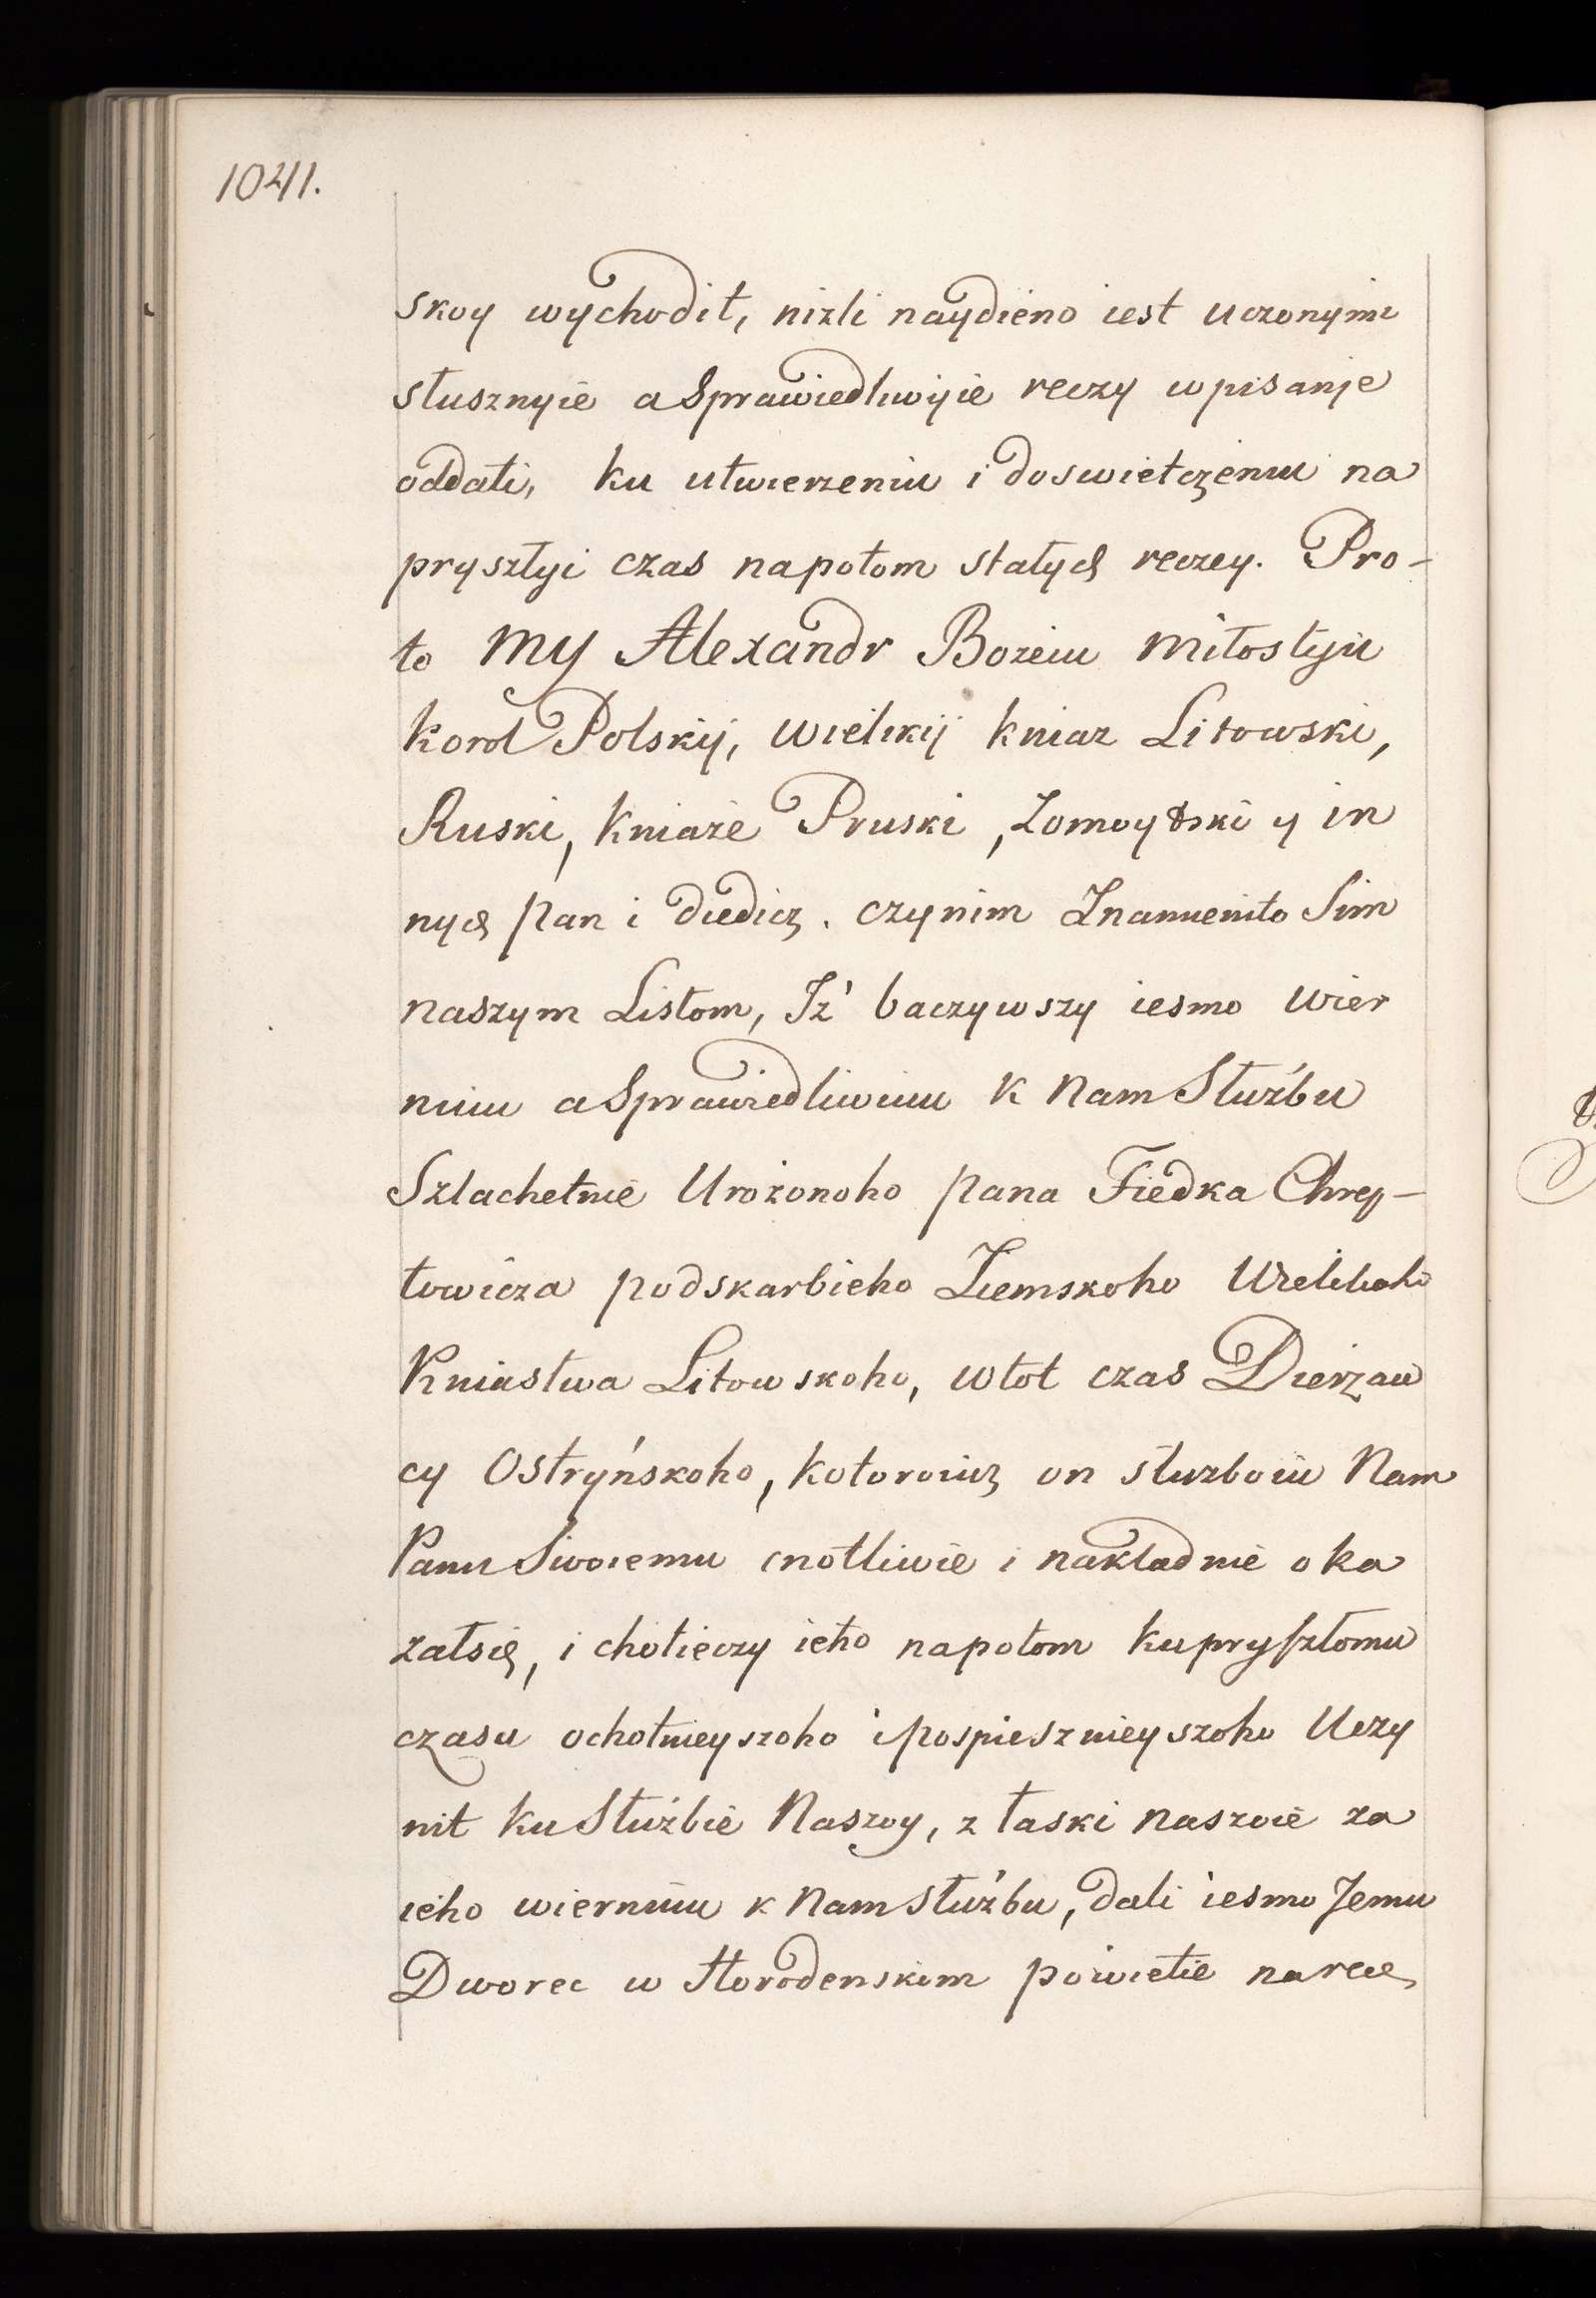 1041.
skoy wychodit, nizli naydieno iest uczonymi
słusznyie a Sprawiedliwyie reczy w pisanje
oddati, ku utwierzeniu i doswietczeniu na
pryszłyi czas napotom stałych reczey. Pro-
to My Alexandr Bozeiu miłostyiu
korol Polskij, wielikij kniaz Litowski,
Ruski, kniaże Pruski, Zomoytski y in
nych pan i diedicz. czynim Znamenito Sim
naszym Listom, Iż baczywszy iesmo wier
nuiu a Sprawiedliwuiu k nam Służbu
Szlachetnie Urożonoho pana Fiedka Chrep-
towicza podskarbieho Ziemskoho Wielikoho
Kniastwa Litowskoho, wtot czas Dierzaw
cy Ostryńskoho, kotoroiuz on służboiu Nam
Panu Swoiemu cnotliwie i nakladnie oka
załsię, i chotieczy ieho napotom ku pryszłomu
czasu ochotnieyszoho i pospiesznieyszoho Uczy
nit ku Służbie Naszoy, z łaski naszoie za
ieho wiernuiu k nam służbu, dali iesmo Jemu
Dworec w Horodenskom powietie na rece